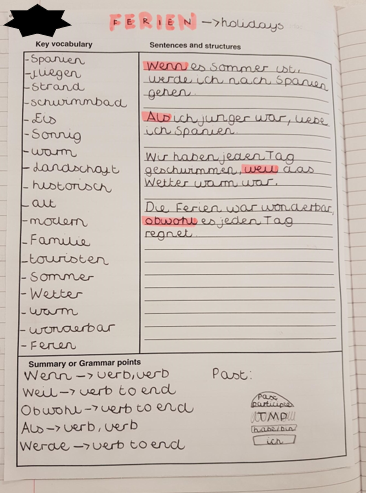 FERIEN → holidays
Key vocabulary
- Spanien
- fliegen
- Strand
- schwimmbad
- Eis
- Sonnig
- warm
- Landschaft
- historisch
- alt
- modern
- Familie
- touristen
- Sommer
- Wetter
- warm
- wonderbar
- Ferien
Sentences and structures
Wenn es Sommer ist,
werde ich nach Spanien
gehen.
Als ich junger war, liebe
ich Spanien.
Wir haben jeden Tag
geschwimmen, weil das
Wetter warm war.
Die Ferien war wonderbar,
obwohl es jeden Tag
regnet
Summary or Grammar points
Wenn → verb, verb
Weil → verb to end
Obwohl → verb to end
Als → verb, verb
Werde → verb to end
Past:
Past
participle
TMP
habe/bin
ich